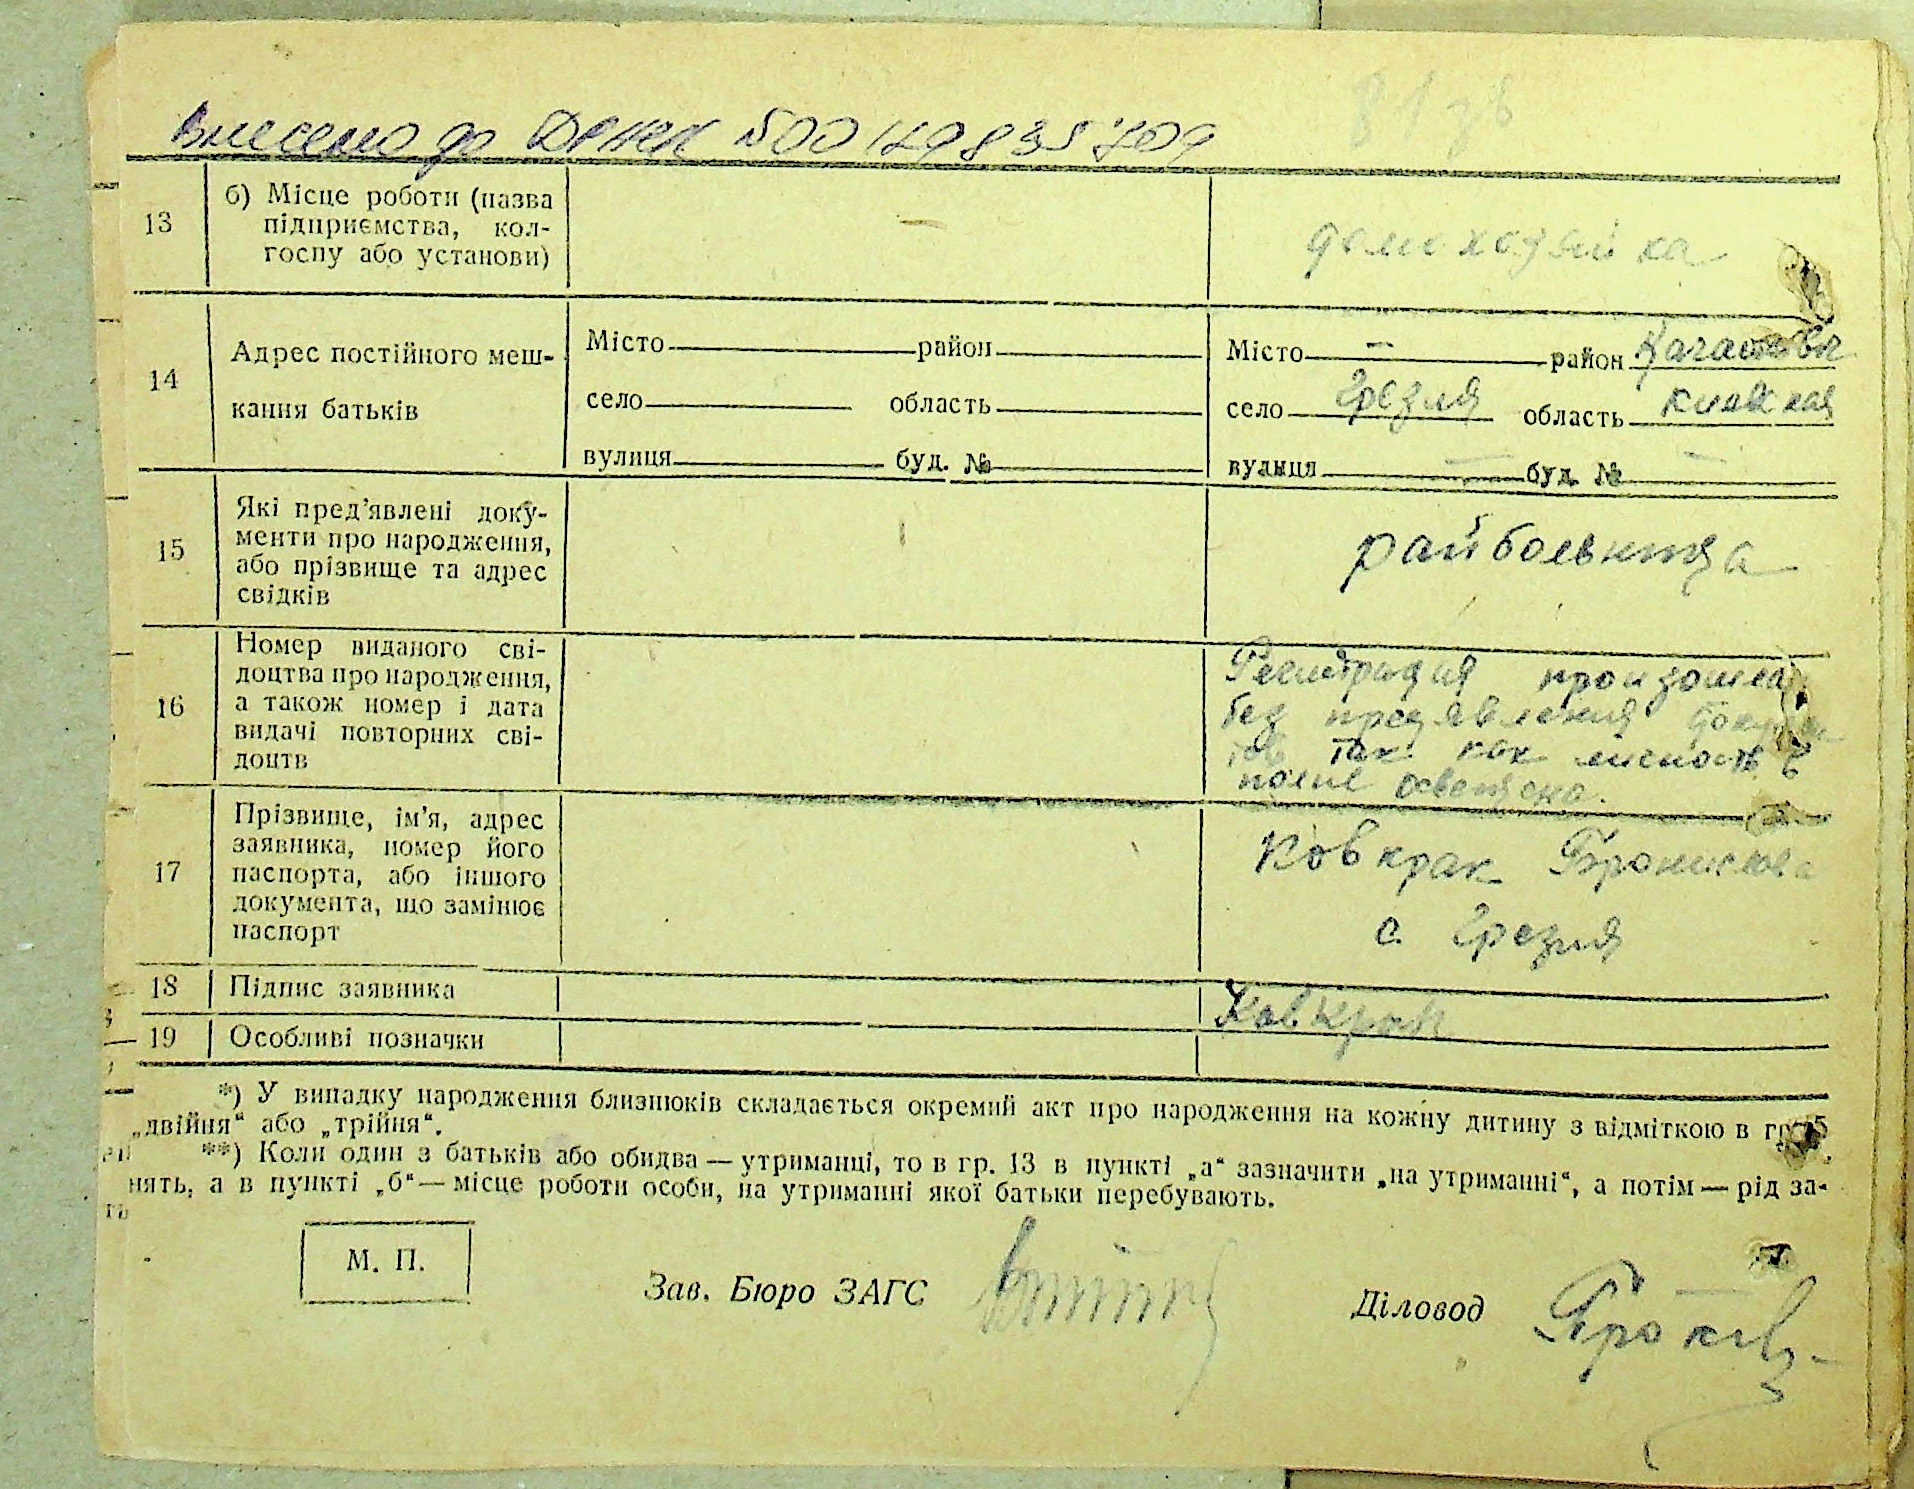 Внесено до ДРАЦС №00149835709
81 зв
13
б) Місце роботи (назва
підприємства, кол-
госпу або установи)
—
домохозяйка
14
Адрес постійного меш-
кання батьків
Місто район
село область
вулиця буд. №
Місто — район
село Грезля область Киевская
вулиця — буд. № —
15
Які пред’явлені доку-
менти про народження,
або прізвище та адрес
свідків
райбольница
16
Номер виданого сві-
доцтва про народження,
а також номер і дата
видачі повторних сві-
доцтв
Регистрация произошла
без предявления докумен
тов так как личность в
полне освещена.
17
Прізвище, ім’я, адрес
заявника, номер його
паспорта, або іншого
документа, що замінює
паспорт
Ковкрак Бронислава
с. Грезля
18
Підпис заявника
Ковкрак
19
Особливі позначки
*) У випадку народження близнюків складається окремий акт про народження на кожну дитину з відміткою в гр. 5
„двійня“ або „трійня“.
**) Коли один з батьків або обидва — утриманці, то в гр. 13 в пункті „а“ зазначити „на утриманні“, а потім — рід за-
нять, а в пункті „б“ — місце роботи особи, на утриманні якої батьки перебувають.
М. П.
Зав. Бюро ЗАГС
Діловод